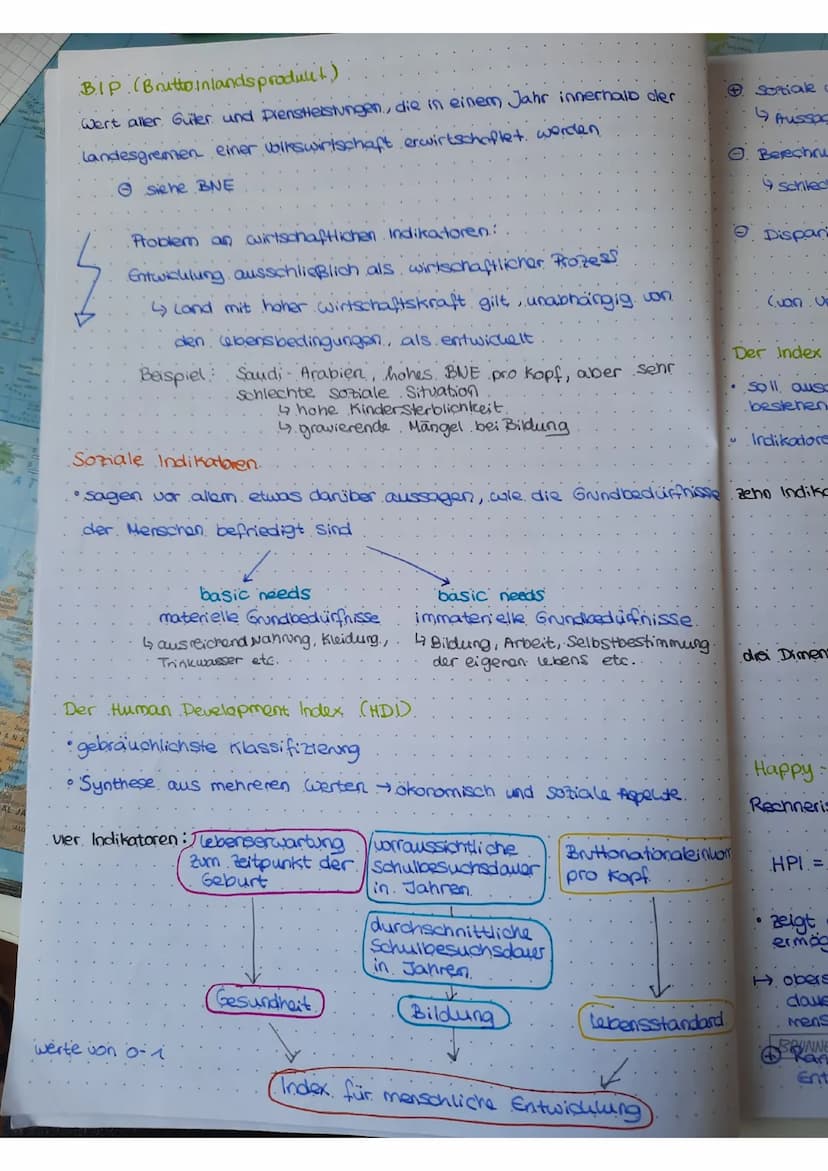 BIP (Bruttoinlandsprodukt)
Wert aller Güter und Dienstleistungen, die in einem Jahr innerhalb der
Landesgrenzen einer Volkswirtschaft erwirtschaftet werden
⊖ siehe BNE
Problem an wirtschaftlichen Indikatoren:
Entwicklung ausschließlich als wirtschaftlicher Prozess
↳ Land mit hoher Wirtschaftskraft gilt, unabhängig von
den Lebensbedingungen, als entwickelt
Beispiel: Saudi-Arabien, hohes BNE pro Kopf, aber sehr
schlechte soziale Situation
↳ hohe Kindersterblichkeit
↳ gravierende Mängel bei Bildung
Soziale Indikatoren
• sagen vor allem etwas darüber aussagen, wie die Grundbedürfnisse
der Menschen befriedigt sind
basic needs
materielle Grundbedürfnisse
↳ ausreichend Nahrung, Kleidung,
Trinkwasser etc.
basic needs
immaterielle Grundbedürfnisse
↳ Bildung, Arbeit, Selbstbestimmung
der eigenen Lebens etc.
Der Human Development Index (HDI)
• gebräuchlichste Klassifizierung
• Synthese aus mehreren Werten → ökonomisch und soziale Aspekte
vier Indikatoren:
Lebenserwartung
zum Zeitpunkt der
Geburt
vorraussichtliche
Schulbesuchsdauer
in Jahren
Bruttonationaleinkom
pro Kopf
durchschnittliche
Schulbesuchsdauer
in Jahren
Gesundheit
Bildung
Lebensstandard
Werte von 0-1
Index für menschliche Entwicklung
⊕ Soziale
↳ Aussag
⊖ Berechnu
↳ schlec
⊖ Dispari
(von
Der Index
• soll auss
bestehen
• Indikatore
zehn Indika
drei Dimen
Happy-
Rechneris
HPI =
• zeigt
ermög
↦ obers
daue
mens
⊕ Ran
Ent